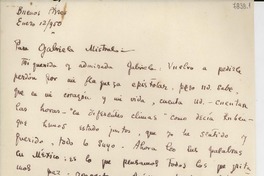 Buenos Aires
Enero 12/950
Para Gabriela Mistral:
Mi querida y admirada Gabriela: Vuelvo a pedirle
perdón por mi flaqueza epistolar, pero Ud. sabe
que en mi corazón y mi vida, cuenta Ud. - cuentan
las horas - "en diferentes climas" como decía Rubén -
que hemos estado juntos, que yo he sentido y
querido, todo lo suyo. Ahora
en México: es lo que pensamos todos los que
amos paz